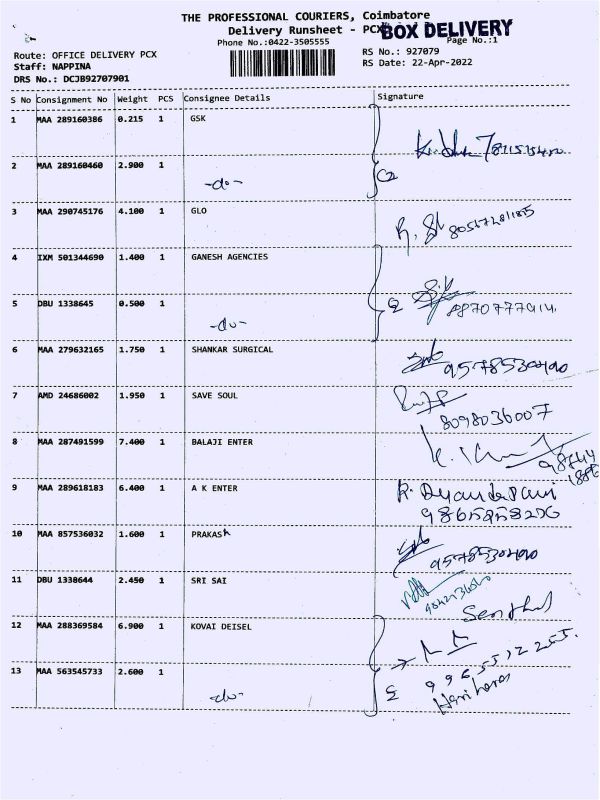 THE PROFESSIONAL COURIERS, Coimbatore
Delivery Runsheet - PCX
BOX DELIVERY
Phone No.:0422-3505555
Page No.:1
Route: OFFICE DELIVERY PCX
RS No.: 927079
Staff: NAPPINA
RS Date: 22-Apr-2022
DRS No.: DCJB92707901
S No Consignment No Weight PCS Consignee Details Signature
1 MAA 289160386 0.215 1 GSK
2 MAA 289160460 2.900 1 -do-
3 MAA 290745176 4.100 1 GLO
4 IXM 501344690 1.400 1 GANESH AGENCIES
5 DBU 1338645 0.500 1 -do-
8870777914
6 MAA 279632165 1.750 1 SHANKAR SURGICAL
9578530490
7 AMD 24686002 1.950 1 SAVE SOUL
8098036007
8 MAA 287491599 7.400 1 BALAJI ENTER
9 MAA 289618183 6.400 1 A K ENTER
9865258256
10 MAA 857536032 1.600 1 PRAKASh
9578530490
11 DBU 1338644 2.450 1 SRI SAI
12 MAA 288369584 6.900 1 KOVAI DEISEL
13 MAA 563545733 2.600 1 -do-